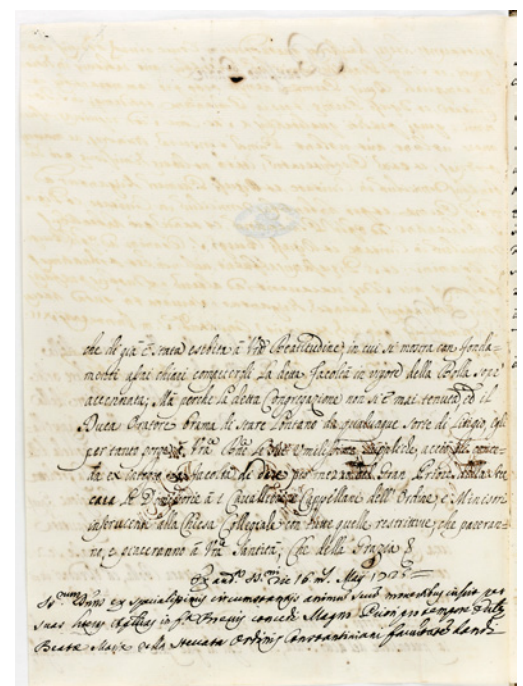 che di già è stata esibita à Vrã Beatitudine, in cui si mostra con fonda-
menti assai chiari competergli la detta facoltà in vigore della Bolla sopr'
accennata; Mà perche la detta Congregazione non si è mai tenuta, ed il
Duca Oratore brama di stare lontano da qualunque sorte di litigio, egli
per tanto porge à Vrã le sue umilissime suppliche, acciò si
da facoltà di dare per mezzo del Gran Priore
le Dimissorie à i Cavallieri Cappellani dell'Ordine, e Ministri
inservienti alla Chiesa Collegiale con tutte quelle restrittive, che pareran-
no, e piaceranno à Vrã Santità; Che della Grazia &
Ex aud.ᵃ SS.ᵐⁱ die 16 Maij
SS.ᵐᵘˢ ex specialissimis circumstantijs animum suum moventibus
suas literas in concedi Magno Priori pro tempore
Beatæ Mariæ della Steccata Ordinis Constantiniani facultatem dandi